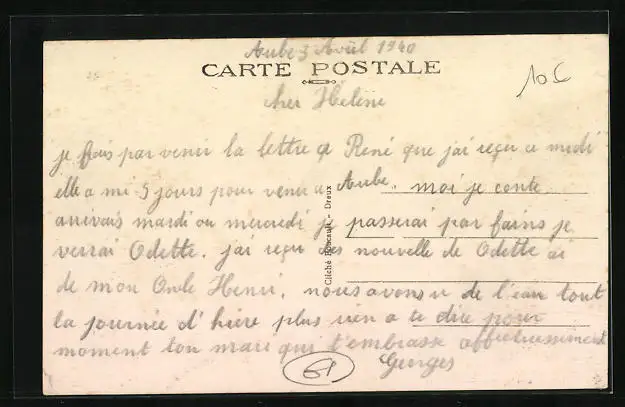 Aube 3 Août 1940
CARTE POSTALE
10 C
cher Hélène
je fais parvenir la lettre a René que j'ai reçu ce midi
elle a mi 5 jours pour venir a Aube. moi je conte
arrivais mardi ou mercredi je passerai par fains je
verrai Odette. j'ai reçu des nouvelle de Odette ai
de mon Oncle Henri. nous avons u de l'eau tout
la journée d'hière plus rien a te dire pour
moment ton mari qui t'embrasse affectueusement
Georges
61
Cliché Dreux